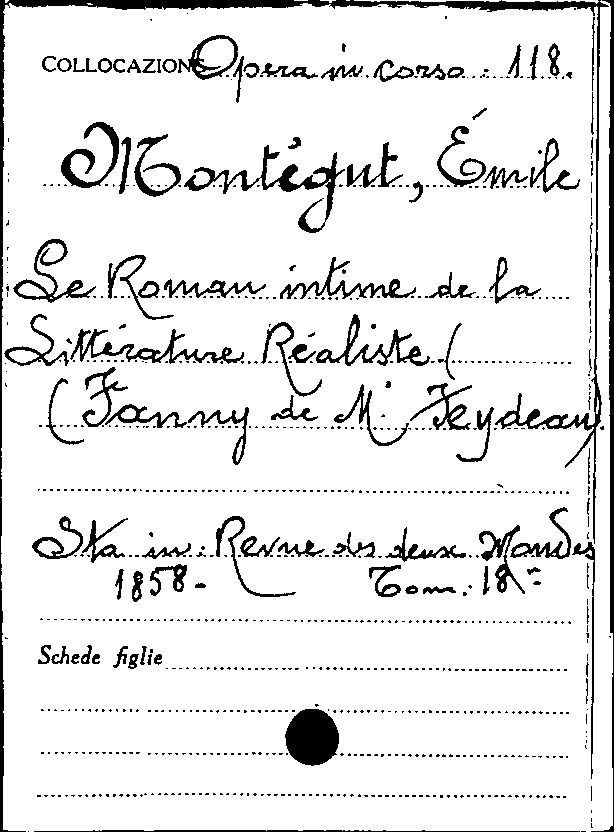 COLLOCAZIONE Opera in corso: 118.
Montégut, Émile
Le Roman intime de la
Littérature Réaliste (
(Fanny de M. Feydeau).
Sta in: Revue des deux Mondes
1858- Tom. 18
Schede figlie